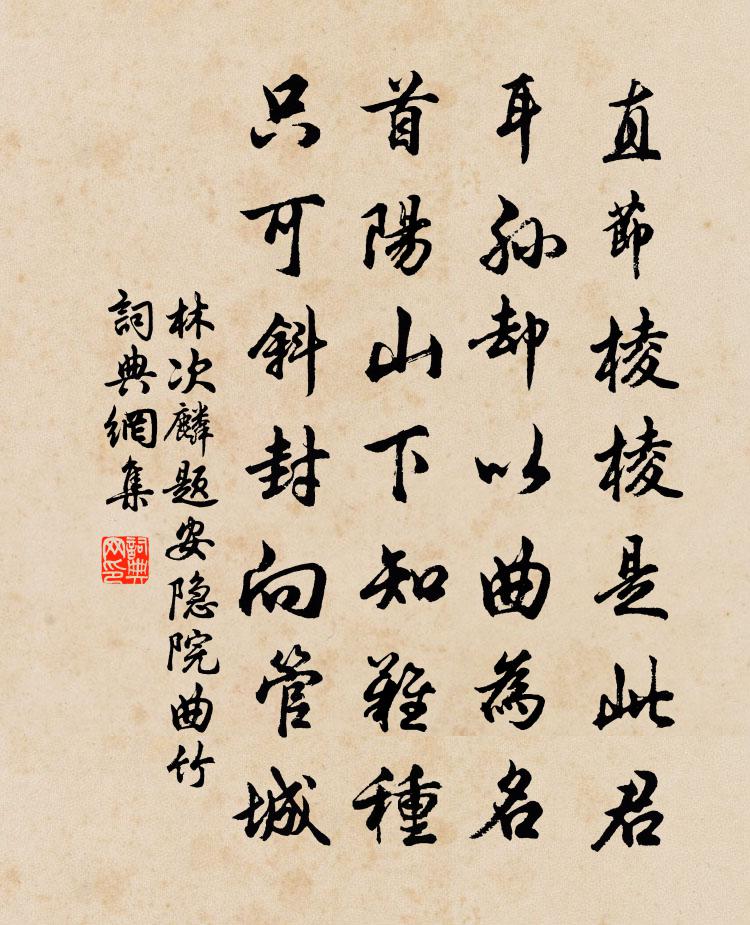 直節棱棱是此君
耳孫却以曲為名
首陽山下知難種
只可斜封向管城
林次麟題安隐院曲竹
詞典網集
詞典网印